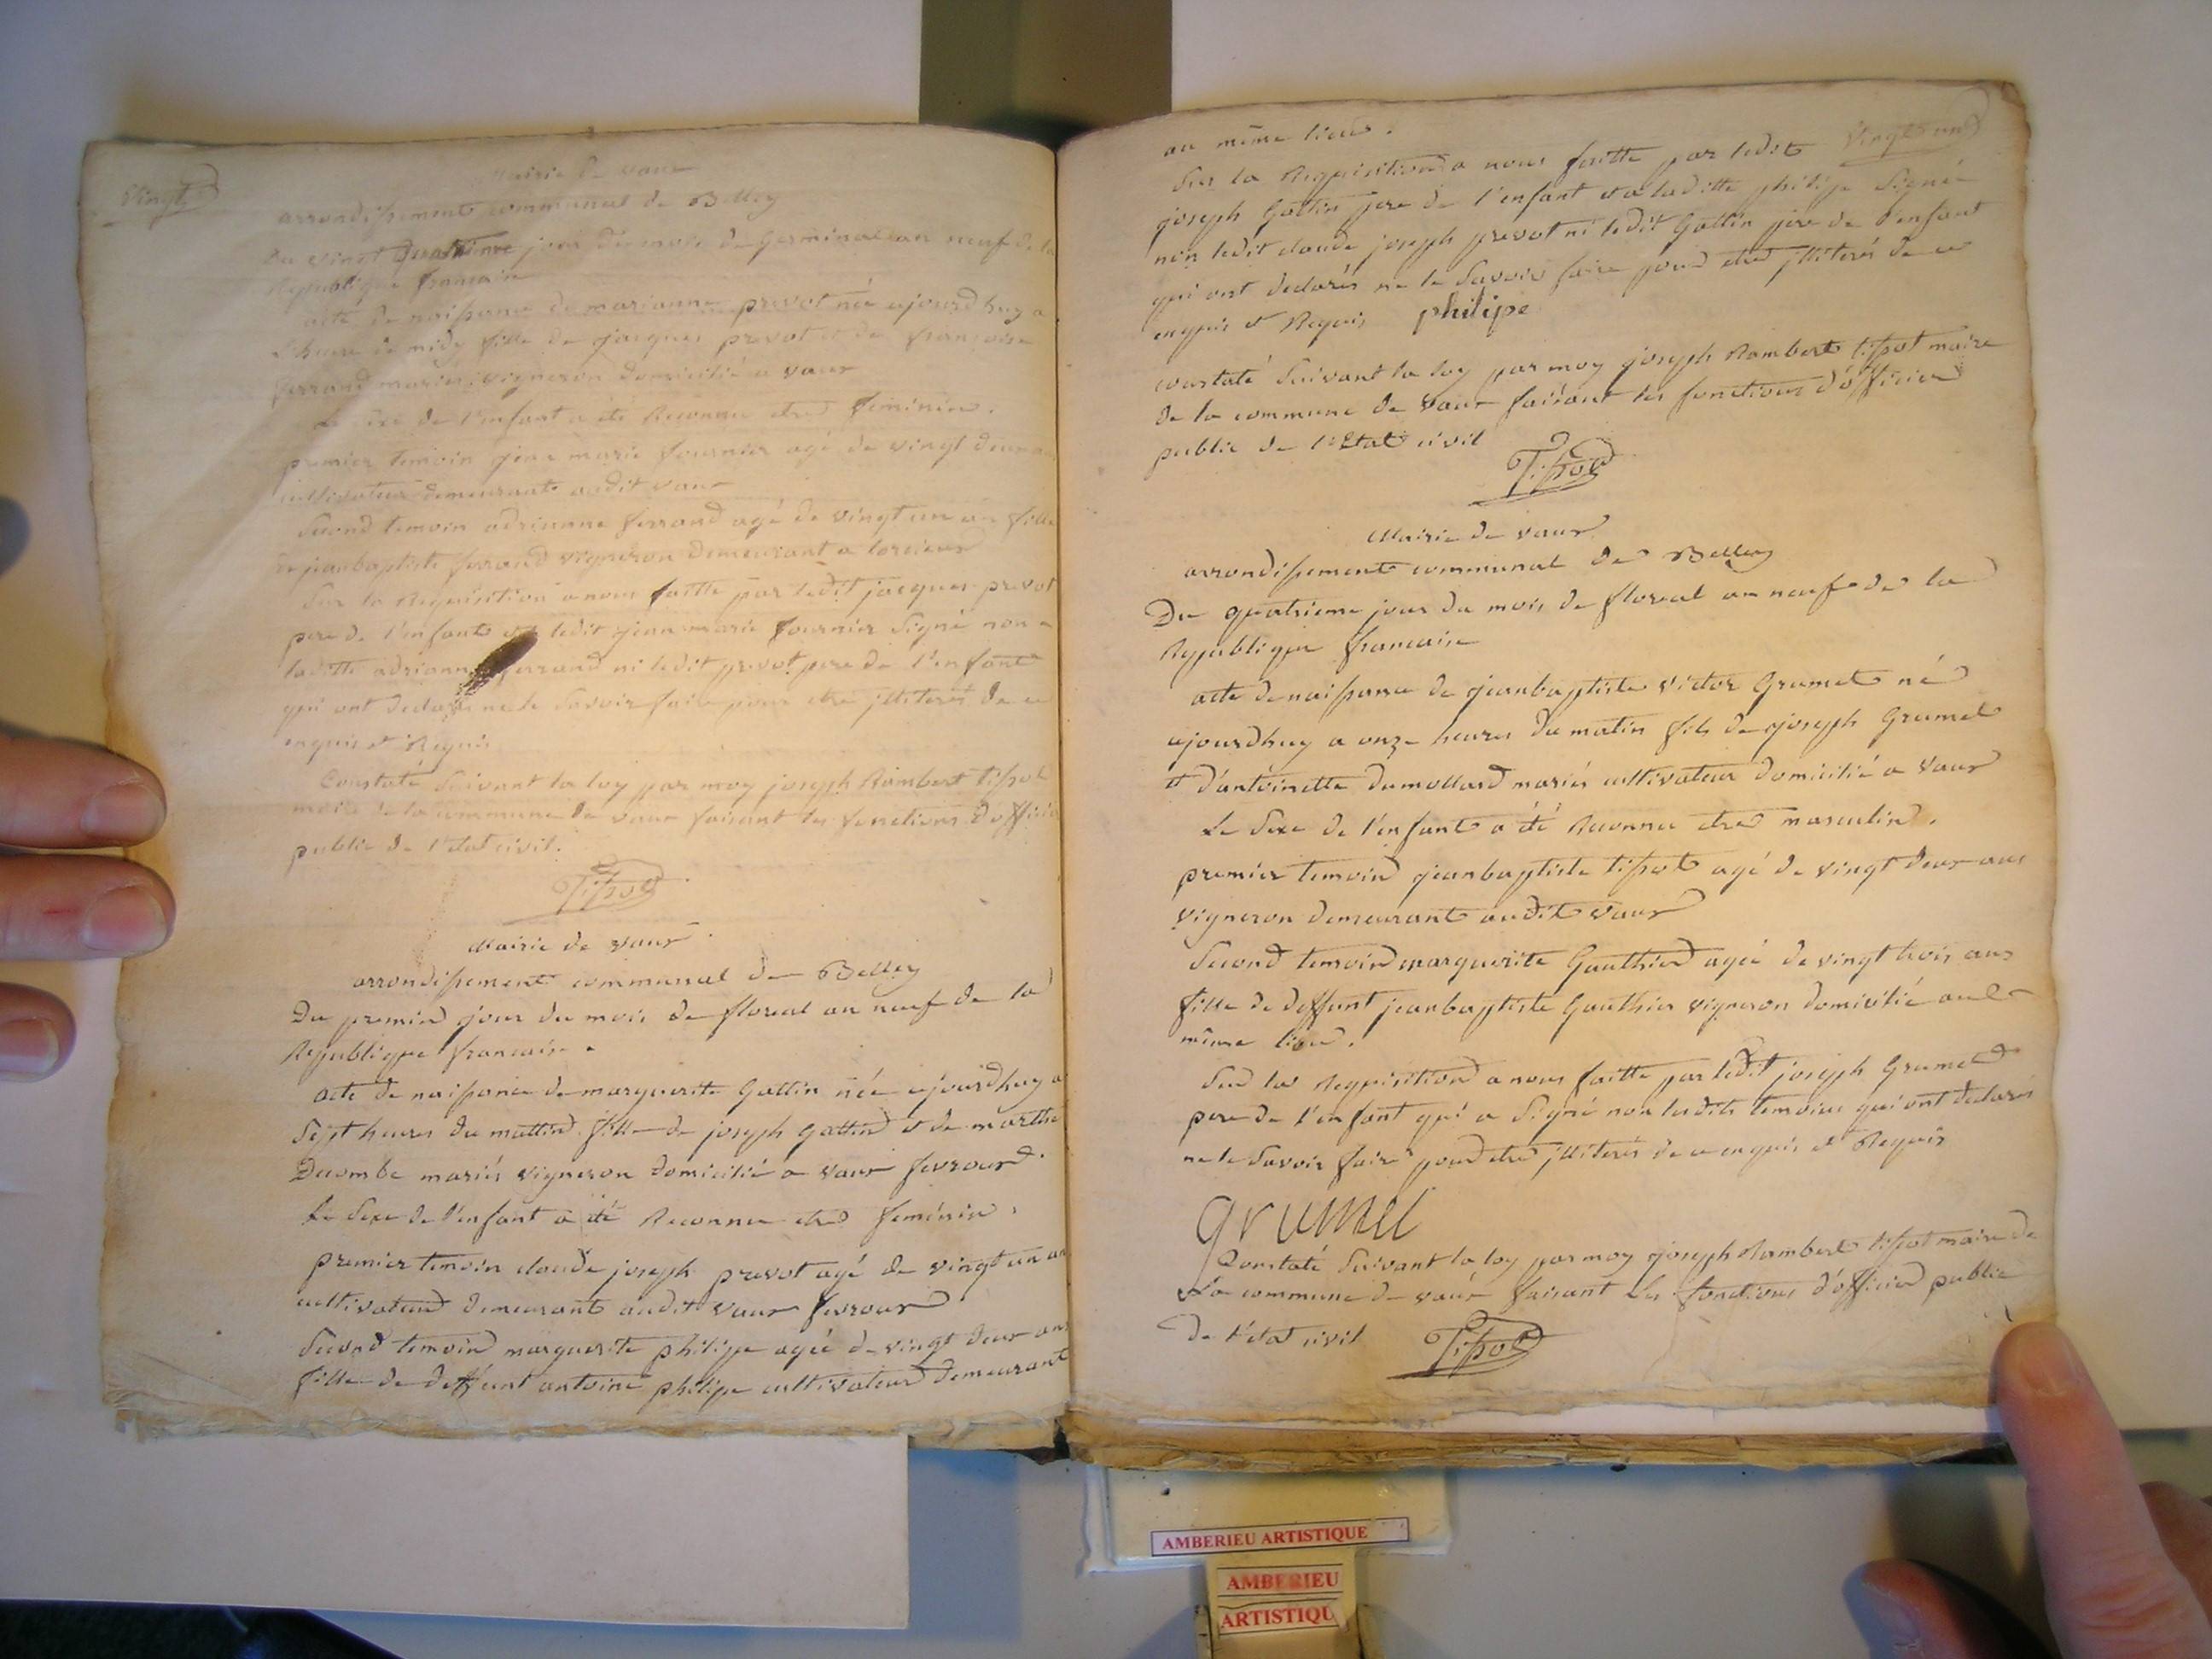 Vingt
Mairie de vaux
arrondissement communal de Belley
Du vingt quatrieme jour du mois de Germinal an neuf de la
Republique francaise
acte de naissance de marianne prevot née ajourdhuy a
L'heure de midy fille de jacques prevot et de francoise
ferrand mariés vigneron domicilié a vaux
Le sexe de l'enfant a été Reconnu etre feminin.
premier temoin jean marie fournier agé de vingt deux
cultivateur demeurant audit vaux
Second temoin adrianne ferrand agé de vingt un an fille
de jeanbaptiste ferrand vigneron demeurant a
Sur la Requisition a nous faitte par ledit jacques prevot
pere de l'enfant et ledit jean marie fournier Signé non
laditte adrianne ferrand ni ledit prevot pere de l'enfant
qui ont declarés ne le Savoir faire pour etre illiterés de ce
enquis et Requis
Constaté Suivant la loy par moy joseph Rambert tissot
maire de la commune de vaux faisant les fonctions d'officier
public de l'etat civil.
Tissot
Mairie de vaux
arrondissement communal de Belley
Du premier jour du mois de floreal an neuf de la
Republique francaise.
acte de naissance de marguerite Gottin née ajourdhuy a
Sept heures du mattin fille de joseph Gottin et de marthe
Ducombe mariés vigneron domicilié a vaux fevroux.
Le Sexe de l'enfant a été Reconnu etre feminin.
premier temoin claude joseph prevot agé de vingt un an
cultivateur demeurant audit vaux fevroux
Second temoin marguerite philippe agée de vingt deux ans
fille de deffunt antoine philipe cultivateur demeurant
Vingt un
au même lieu.
Sur la Requisition a nous faitte par ledit
joseph Gottin pere de l'enfant et a laditte philipe Signé
non ledit claude joseph prevot ni ledit Gottin pere de l'enfant
qui ont declarés ne le Savoir faire pour etre illiterés de ce
enquis et Requis philipe
constaté Suivant la loy par moy joseph Rambert tissot maire
de la commune de vaux faisant les fonctions d'officier
public de l'Etat civil
Tissot
Mairie de vaux
arrondissement communal de Belley
Du quatrieme jour du mois de floreal an neuf de la
Republique francaise
acte de naissance de jeanbaptiste victor Grumet né
ajourdhuy a onze heures du matin fils de joseph Grumet
et d'antoinette dumollard mariés cultivateur domicilié a vaux
Le Sexe de l'enfant a été Reconnu etre masculin.
premier temoin jeanbaptiste tissot agé de vingt deux ans
vigneron demeurant audit vaux
Second temoin marguerite Gauthier agée de vingt trois ans
fille de deffunt jeanbaptiste Gauthier vigneron domicilié au
même lieu.
Sur la Requisition a nous faitte par ledit joseph Grumet
pere de l'enfant qui a Signé non lesdits temoins qui ont declarés
ne le Savoir faire pour etre illiterés de ce enquis et Requis
grumet
Constaté Suivant la loy par moy joseph Rambert tissot maire de
La commune de vaux faisant les fonctions d'officier public
De l'etat civil Tissot
AMBERIEU ARTISTIQUE
AMBERIEU
ARTISTIQU